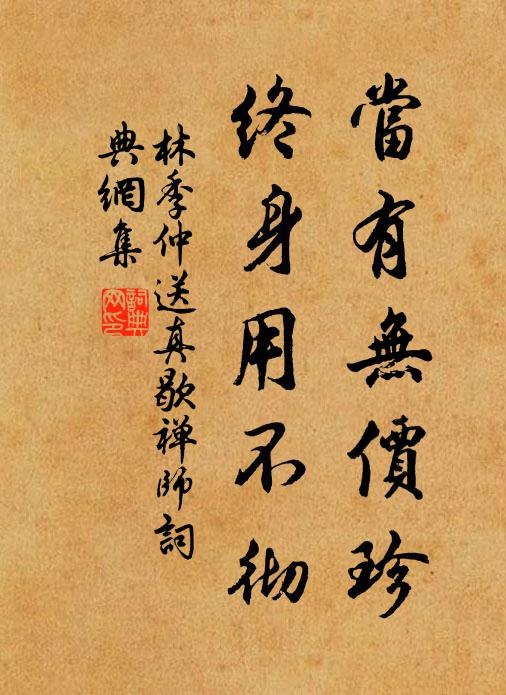 當有無價珍
終身用不彻
林季仲送真歇禅师詞
典網集
詞典
网印